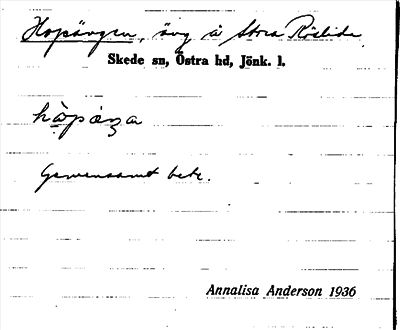 Hopängen, äng å Stora Röslida
Skede sn, Östra hd, Jönk. l.
Gemensamt bete.
Annalisa Anderson 1936